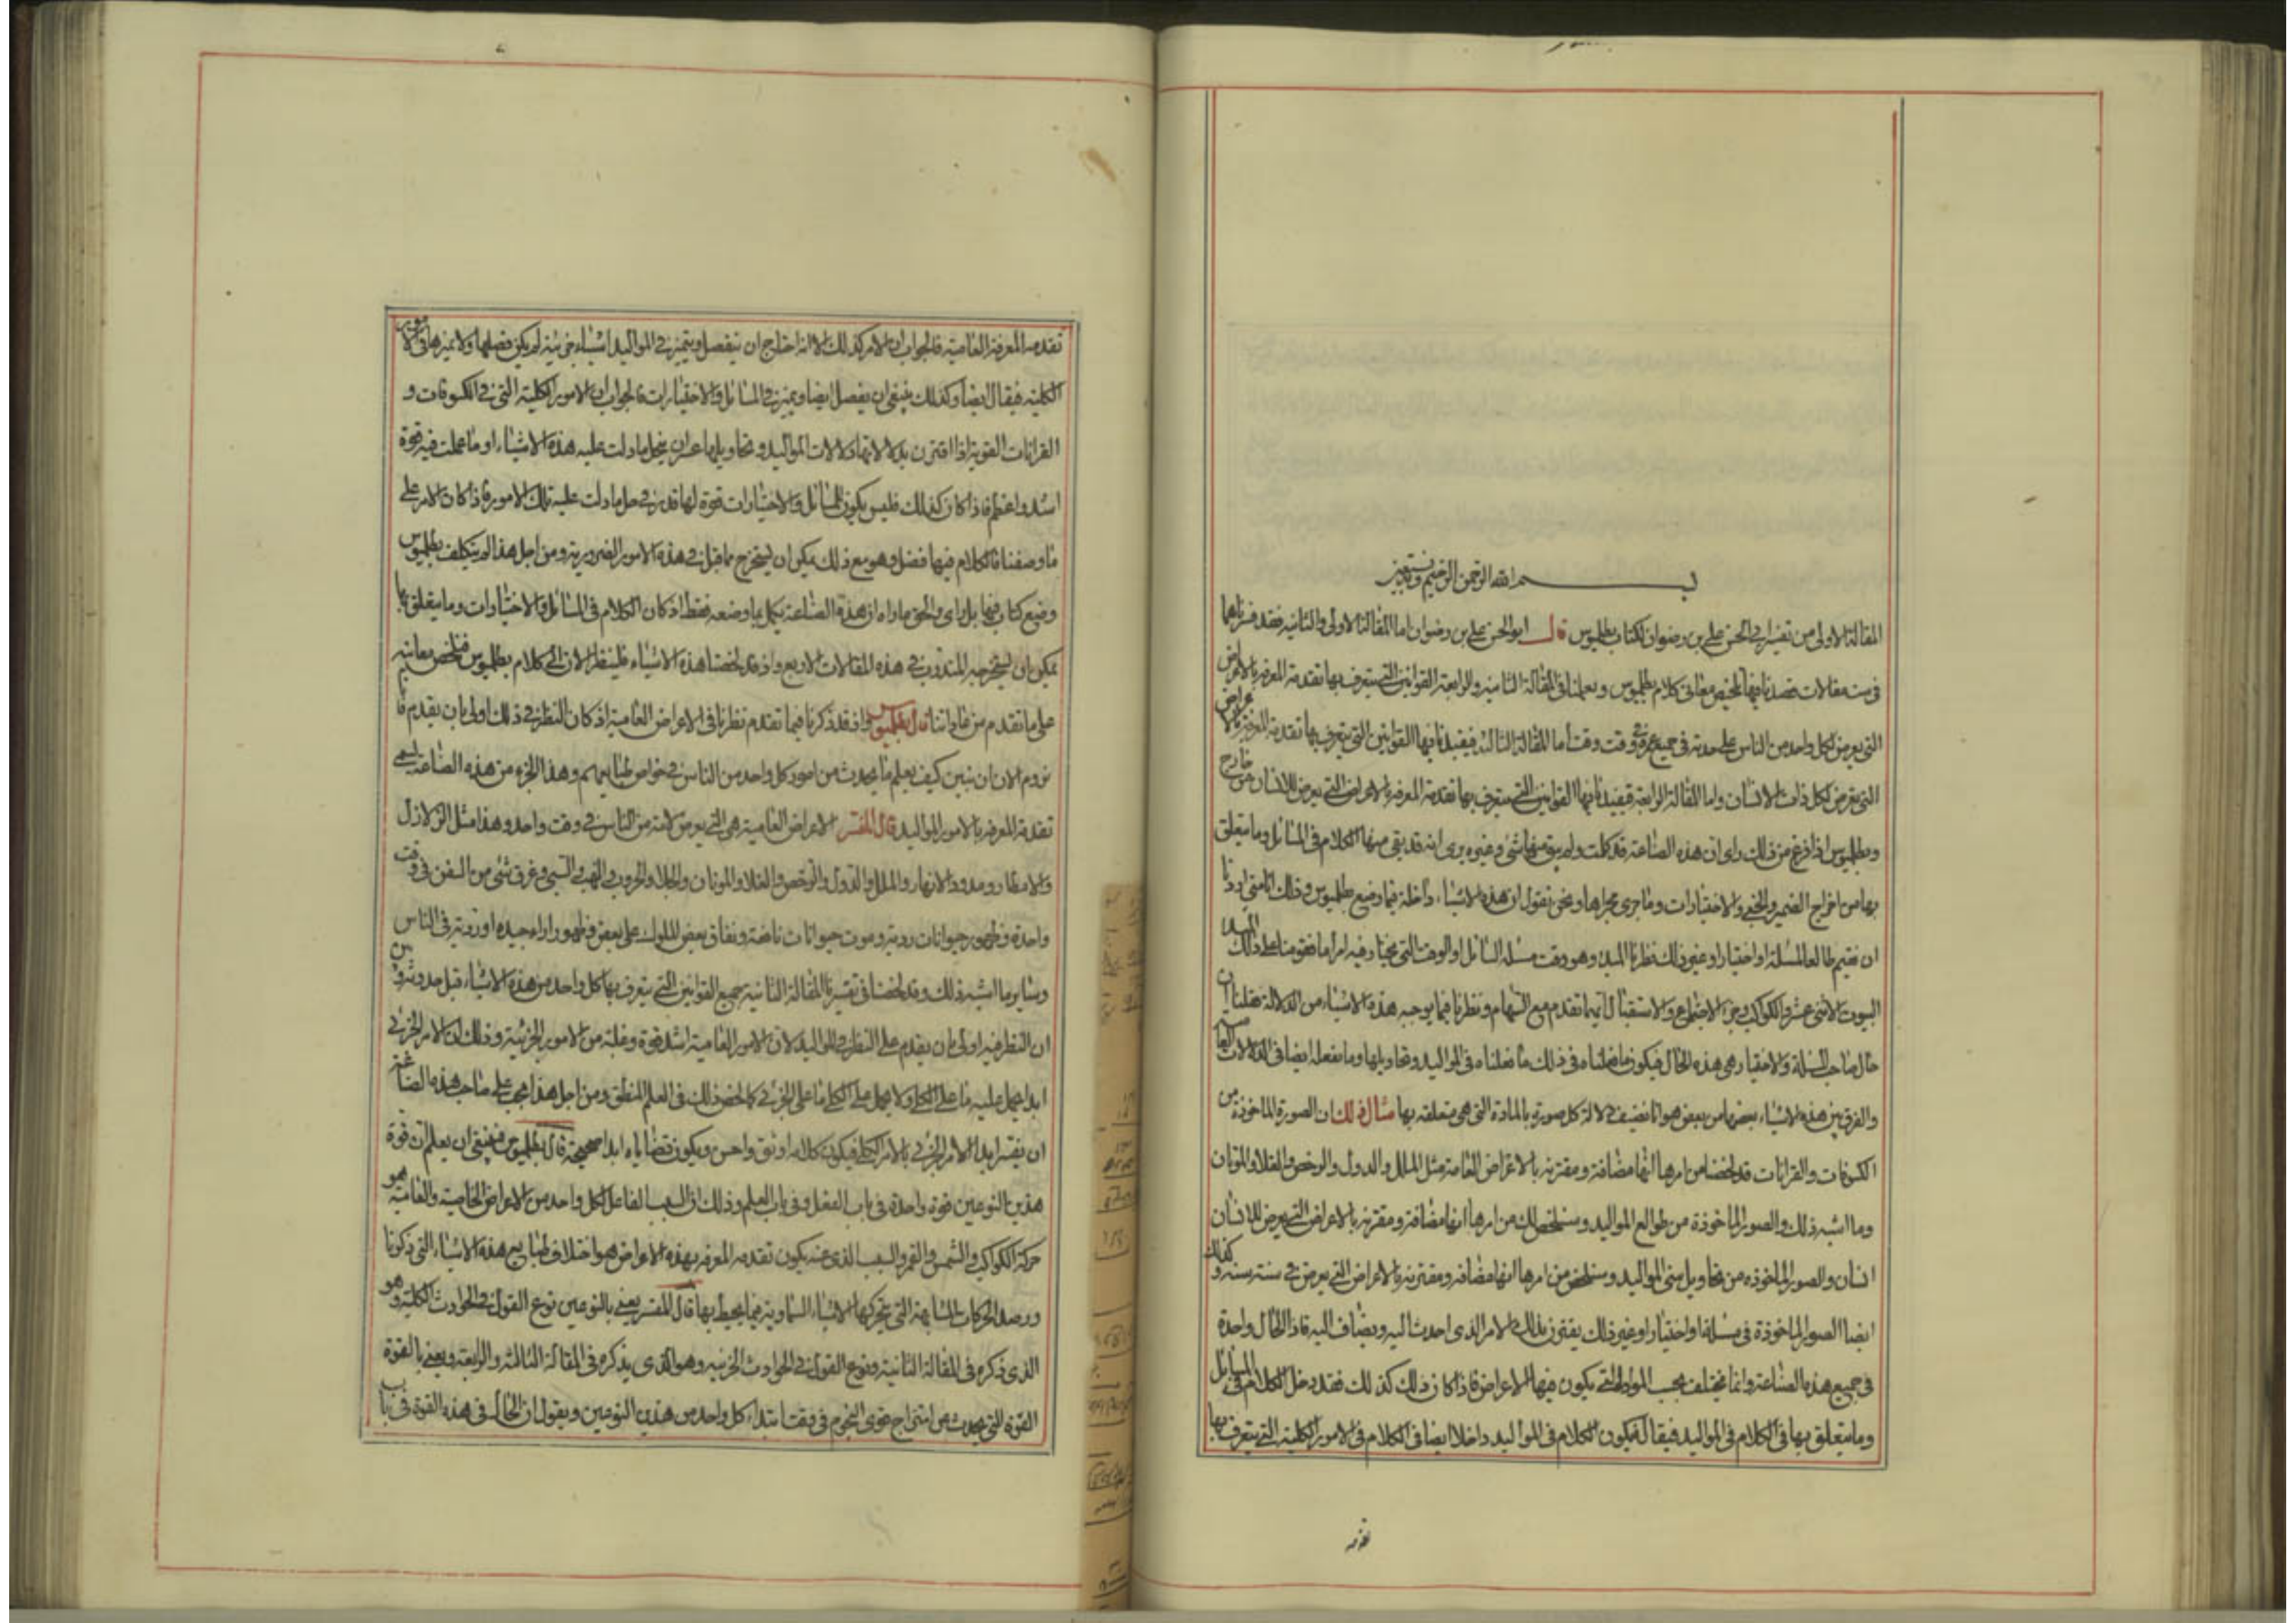 بسم الله الرحمن الرحيم وبه نستعين
المقالة الاولى من تفسير ابى الحسن على بن رضوان لكتاب بطلميوس قال ابو الحسن على بن رضوان اما المقالة الاولى والثانية فقد فسرناهما
فى ست مقالات قصدنا فيها تلخيص معانى كلام بطلميوس وبعملنا فى المقالة الثانية والرابعة القوانين التى يتعرف بها تقدمة المعرفة بالاعراض
التى يعرض لكل واحد من الناس على حدته فى جميع عمره وفى وقت وقت اما المقالة الثالثة فيفيدنا فيها القوانين التى يتعرف بها تقدمة المعرفة بالاعراض
التى تعرض لكل ذات الانسان واما المقالة الرابعة فيفيدنا فيها القوانين التى يتعرف بها تقدمة المعرفة بالاعراض التى يعرض للانسان من خارج
وبطلميوس اذا فرغ من ذلك راى ان هذه الصناعة قد كملت ولم يبق منها شئ وغيره يرى انه قد بقى منها الكلام فى المسائل وما يتعلق
بها من اخراج الضمير والخبى والاختيارات وما جرى مجراها ونحن نقول ان هذه الاشياء داخلة فيما وضع بطلميوس وذلك انا متى اردنا
ان نقيم طالعا لمسئلة او اختيار او غير ذلك نظرنا المبدا وهو وقت مسئلة السائل او الوقت التى يختار فيه امرا ما فقومنا على ذلك المبدا
البيوت الاثنى عشر والكواكب وجزء الاجتماع والاستقبال فيما تقدم مع السهام ونظرنا فيما يوجبه هذه الاشياء من الدلالة فقلنا ان
حال صاحب المسئلة والاختيار هى هذه الحال فيكون ما فعلناه فى ذلك ما فعلناه فى المواليد وتحاويلها وما نفعله ايضا فى الدلالات العامية
والفرق بين هذه الاشياء بعضها من بعض هو انا نضيف دلالة كل صورة بالمادة التى هى متعلقه بها مثال ذلك ان الصورة الماخوذة من
الكسوفات والقرانات قد لخصنا من امرها انها مضافة ومقترنة بالاعراض العامة مثل الملل والدول والرخص والغلا والموتان
وما اشبه ذلك والصور الماخوذة من طوالع المواليد وسنلخص لك من امرها انها مضافة ومقترنة بالاعراض التى يعرض للانسان
انسان والصور الماخوذه من تحاويل سنى المواليد وسنلخص من امرها انها مضافه ومقترنة بالاعراض التى يعرض فى سنة سنة وكذلك
ايضا الصور الماخوذة فى مسئلة او اختيار او غير ذلك يقترن بذلك الامر الذى احدث اليه ويضاف اليه فاذا الحال واحدة
فى جميع هذه الصناعة وانما يختلف بحسب المواد التى يكون فيها الاعراض فاذا كان ذلك كذلك فقد دخل الكلام فى المسائل
وما يتعلق بها فى الكلام فى المواليد فيقال فيكون الكلام فى المواليد داخلا ايضا فى الكلام فى الامور الكلية التى يتعرف بها
تقدمه
تقدمه المعرفة العامية فالجواب ان الامر كذلك الا انه احتاج ان يفصل ويتميز فى المواليد اشياء جزئية لم يكن فصلها ولا ميزها فى الامور
الكلية فيقال ايضا وكذلك ينبغى ان يفصل ايضا ويميز فى المسائل والاختيارات فالجواب ان الامور الكلية التى فى الكسوفات و
القرانات القوية اذا اقترن بدلالاتها دلالات المواليد وتحاويلها عسر ان ينحل ما دلت عليه هذه الاشياء او ما عملت فيه قوة
اشد واعظم فاذا كان كذلك فليس يكون للمسائل والاختيارات قوة لها قدر فى حل ما دلت عليه تلك الامور فاذا كان الامر على
ما وصفنا فالكلام فيها فضل وهو مع ذلك يمكن ان يستخرج مما قيل فى هذه الامور الضرورية ومن اجل هذا لم يتكلف بطلميوس
وضع كتاب فيها بل راى والحق ما راه ان هذه الصناعة يكمل بما وضعه فقط اذ كان الكلام فى المسائل والاختيارات وما يتعلق بها
يمكن ان يستخرجه المتدرب فى هذه المقالات الاربع واذ قد لخصنا هذه الاشياء فلينظر الان الى كلام بطلميوس فنلخص معانيه
على ما تقدم من عاداتنا قال بطلميوس واذ قد ذكرنا فيما تقدم نظرنا فى الاعراض العامية اذ كان النظر فى ذلك اولى بان يقدم فانا
نروم الان ان نبين كيف يعلم ما يحدث من امور كل واحد من الناس فى خواص طبائعهم وهذا الجزء من هذه الصناعة يسمى
تقدمة المعرفة بالامور المواليد قال المفسر الاعراض العامية هى التى يعرض لامة من الناس فى وقت واحد وهذا مثل الزلازل
والامطار ومدود الانهار والملل والدول والرخص والغلا والموتان والجلا والحروب والنهب والسبى وغرق شئ من السفن فى وقت
واحدة وظهور حيوانات ردية وموت حيوانات نافعة ونفاق بعض الملوك على بعض وظهور اراء جيده او ردية فى الناس
وساير ما اشبه ذلك وقد لخصنا فى تفسير المقالة الثانية جميع القوانين التى يتعرف بها كل واحد من هذه الاشياء قبل حدوثه وبين
ان النظر فيه اولى بان يقدم على النظر فى المواليد لان الامور العامية اشد قوة وغلبة من الامور الجزئية وذلك ان الامر الجزئى
ابدا يحمل عليه ما على الكلى ولا يحمل على الكلى ما على الجزئى كما لخص ذلك فى العلم المنطق ومن اجل هذا يجب على صاحب هذه الصناعة
ان يقيس ابدا الامر الجزئى بالامر الكلى فيكون كلامه اوثق واحسن ويكون قضاياه ابدا صحيحة قال بطلميوس فينبغى ان يعلم ان قوة
هذين النوعين قوة واحدة فى باب الفعل وفى باب العلم وذلك ان السبب الفاعل لكل واحد من الاعراض الخاصية والعامية هو
حركة الكواكب والشمس والقمر والسبب الذى عنه يكون تقدمه المعرفه بهذه الاعراض هو اختلاف طبايع هذه الاشياء التى ذكرنا
ورصد الحركات المتشابهة التى يتحركها الاشياء السماوية فيما يحيط بها قال المفسر يعنى بالنوعين نوع القول فى الحوادث الكلية وهو
الذى ذكره فى المقالة الثانية ونوع القول فى الحوادث الجزئيه وهو الذى يذكره فى المقالة الثالثة والرابعة ويعنى بالقوة
القوة التى يحدث من امتزاج قوى النجوم فى وقت ابتداء كل واحد من هذين النوعين ويقول ان الحال فى هذه القوة فى باب